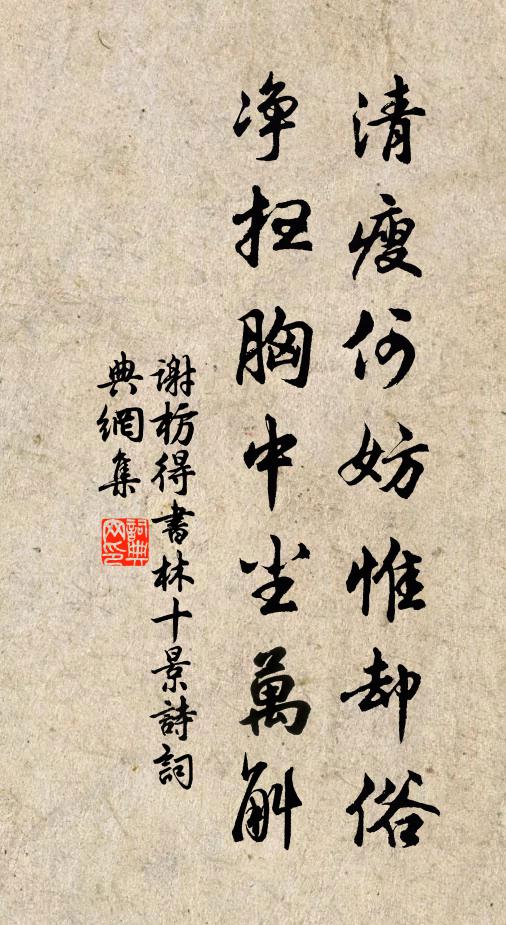 清瘦何妨惟却俗
净扫胸中尘萬斛
謝枋得書林十景詩詞
典網集
詞典
网印